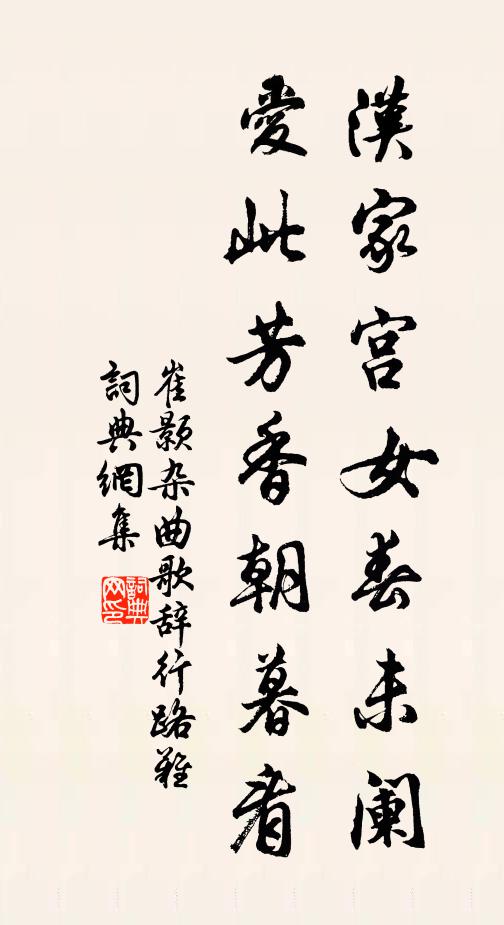 漢家宮女春未闌
愛此芳香朝暮看
崔顥杂曲歌辞行路難
詞典網集
詞典网印